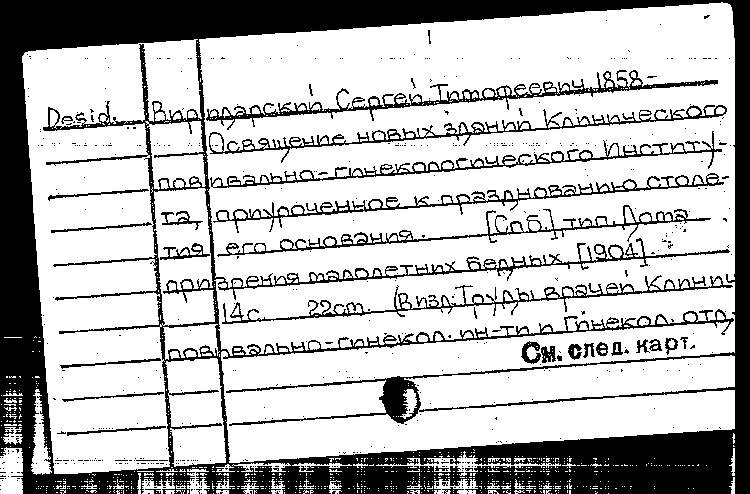 Desid. Виридарский, Сергей Тимофеевич, 1858-
Освящение новых зданий Клинического
повивально-гинекологического Институ-
та, приуроченное к празднованию столе-
тия его основания. [Спб.], тип. Дома
призрения малолетних бедных, [1904].
14с. 22cm. (В изд: Труды врачей Клинич
повивально-гинекол. ин-ти и Гинекол. отд.
См. след. карт.